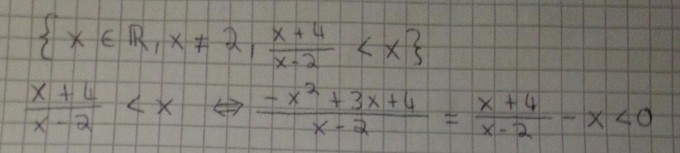 { x ∈ ℝ, x ≠ 2, (x + 4)/(x - 2) < x }
(x + 4)/(x - 2) < x ⇔ (-x² + 3x + 4)/(x - 2) = (x + 4)/(x - 2) - x < 0